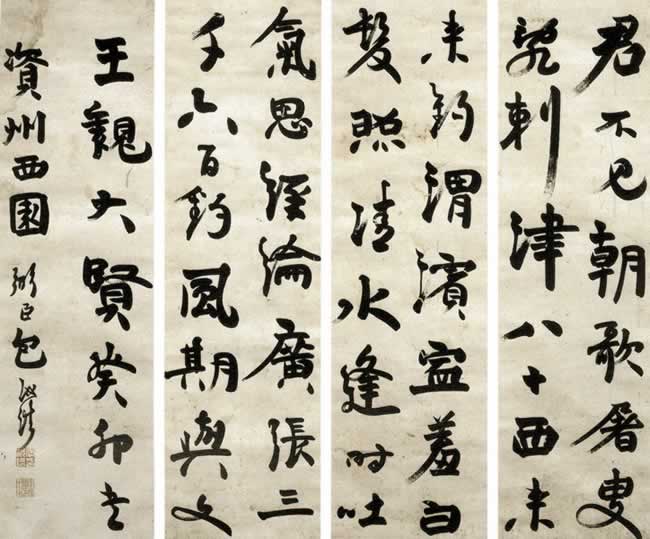 君不見朝歌屠叟
辭棘津八十西來
來釣渭濱寧羞白
髮照清水逢時吐
氣思經綸廣張三
千六百釣風期與文
王親大賢癸卯書
資州西園 弼臣包汝諧